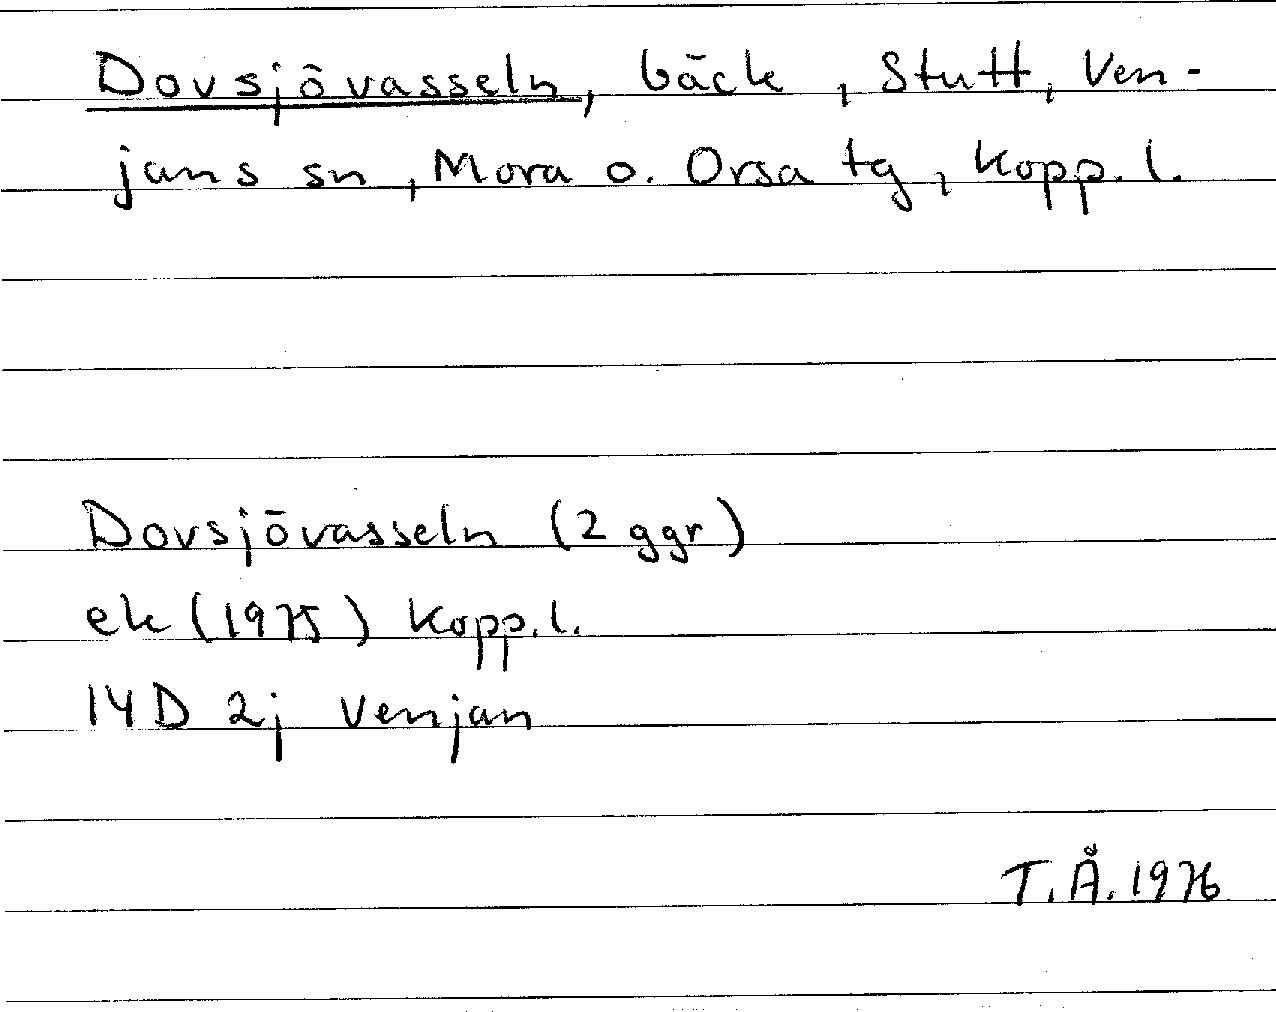 Dovsjövasseln, bäck, Stutt, Ven-
jans sn, Mora o. Orsa tg, Kopp. l.
Dovsjövasseln (2 ggr)
ek (1975) Kopp. l.
14D 2j Venjan
T. Å. 1976